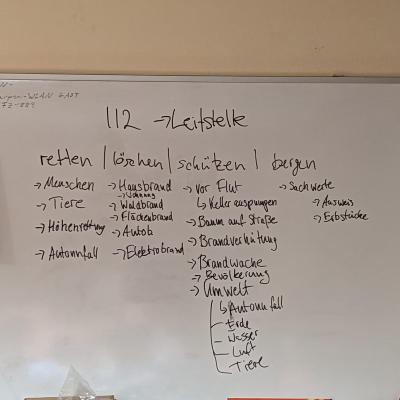 112 → Leitstelle
retten | löschen | schützen | bergen
→ Menschen
→ Tiere
→ Höhenrettung
→ Autounfall
→ Hausbrand
→ Wohnung
→ Waldbrand
→ Flächenbrand
→ Autob
→ Elektrobrand
→ vor Flut
↳ Keller auspumpen
→ Baum auf Straße
→ Brandverhütung
→ Brandwache
→ Bevölkerung
→ Umwelt
↳ Autounfall
Erde
Wasser
Luft
Tiere
→ Sachwerte
→ Ausweis
→ Erbstücke